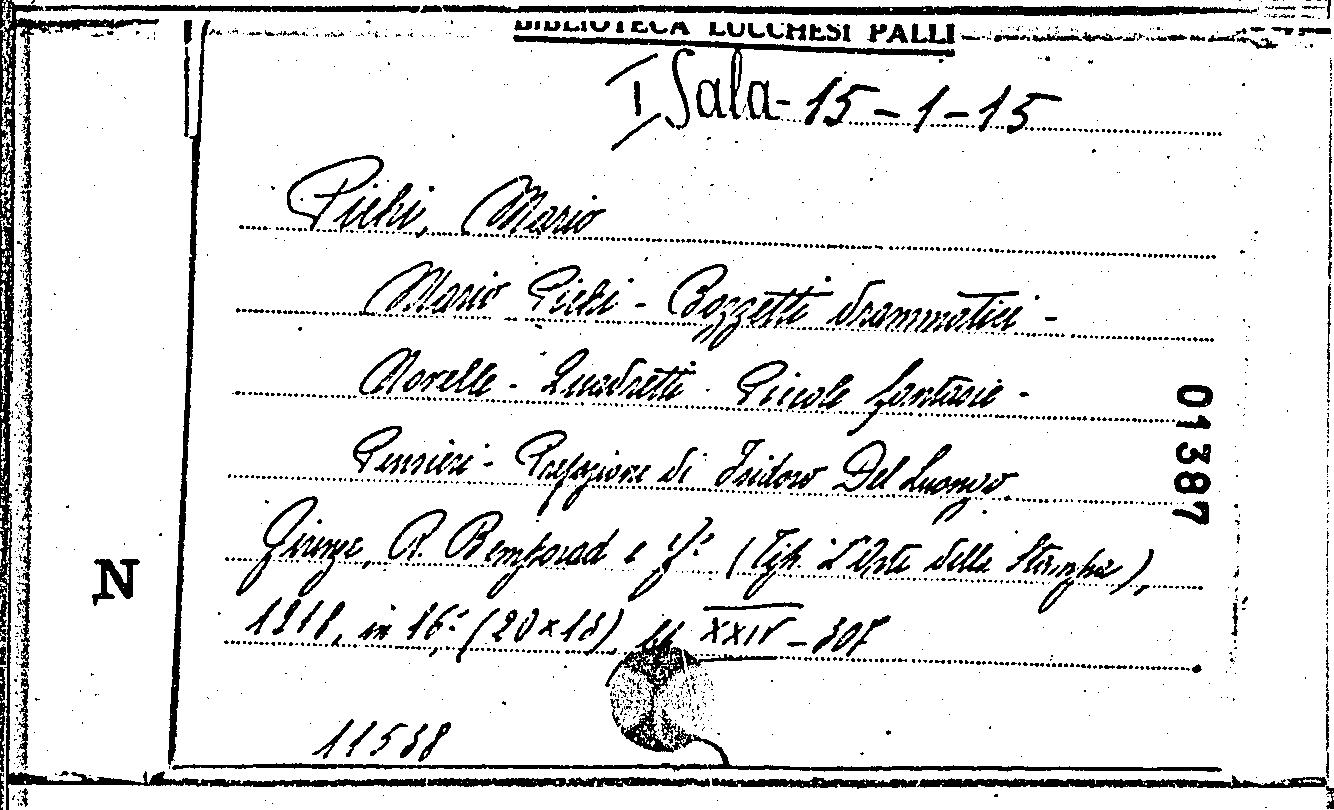 BIBLIOTECA LUCCHESI PALLI
I Sala - 15 - 1 - 15
Pichi, Mario
Mario Pichi - Bozzetti drammatici -
Novelle - Quadretti - Piccole fantasie -
Pensieri - Prefazione di Isidoro Del Lungo.
Firenze, R. Bemporad e f.º (Tip. L'Arte della Stampa),
in 16.º (20×13), pp. XXIV -
11538
01387
N